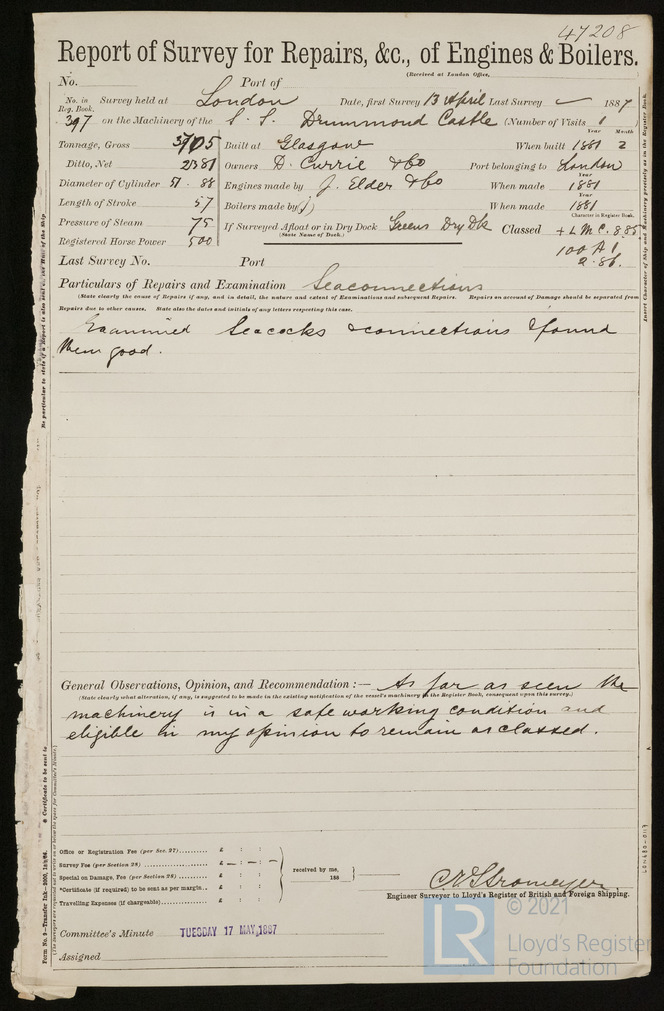 47208
Report of Survey for Repairs, &c., of Engines & Boilers.
(Received at London Office,
No. Port of
No. in Reg. Book. Survey held at London Date, first Survey 13 April Last Survey 1887
397 on the Machinery of the S. S. Drummond Castle (Number of Visits 1
Year Month
Tonnage, Gross 3705 Built at Glasgow When built 1881 2
Ditto, Net 2381 Owners D. Currie & Co Port belonging to London
Year
Diameter of Cylinder 51 . 88 Engines made by J. Elder & Co When made 1881
Year
Length of Stroke 57 Boilers made by When made 1881
Character in Register Book.
Pressure of Steam 75 If Surveyed Afloat or in Dry Dock Greens Dry Dk Classed + L M C. 8.85
(State Name of Dock.)
Registered Horse Power 500 100 A 1
Last Survey No. Port 2.86.
Particulars of Repairs and Examination Seaconnections
(State clearly the cause of Repairs if any, and in detail, the nature and extent of Examinations and subsequent Repairs. Repairs on account of Damage should be separated from
Repairs due to other causes. State also the dates and initials of any letters respecting this case.
Examined Seacocks & connections & found
them good.
General Observations, Opinion, and Recommendation :— As far as seen the
(State clearly what alteration, if any, is suggested to be made in the existing notification of the vessel's machinery in the Register Book, consequent upon this survey.)
machinery is in a safe working condition and
eligible in my opinion to remain as classed.
Office or Registration Fee (per Sec. 27) £ : :
Survey Fee (per Section 28) £ — : — : —
Special on Damage, Fee (per Section 28) £ : :
received by me,
188
*Certificate (if required) to be sent as per margin £ : :
Travelling Expenses (if chargeable) £ : :
C. E. Stromeyer
Engineer Surveyor to Lloyd's Register of British and Foreign Shipping.
Committee's Minute TUESDAY 17 MAY, 1887
Assigned
Insert Character of Ship and Machinery precisely as in the Register Book.
* Certificate to be sent to
Form No. 9—Transfer Ink—
LON480-0117
LR
© 2021
Lloyd's Register
Foundation